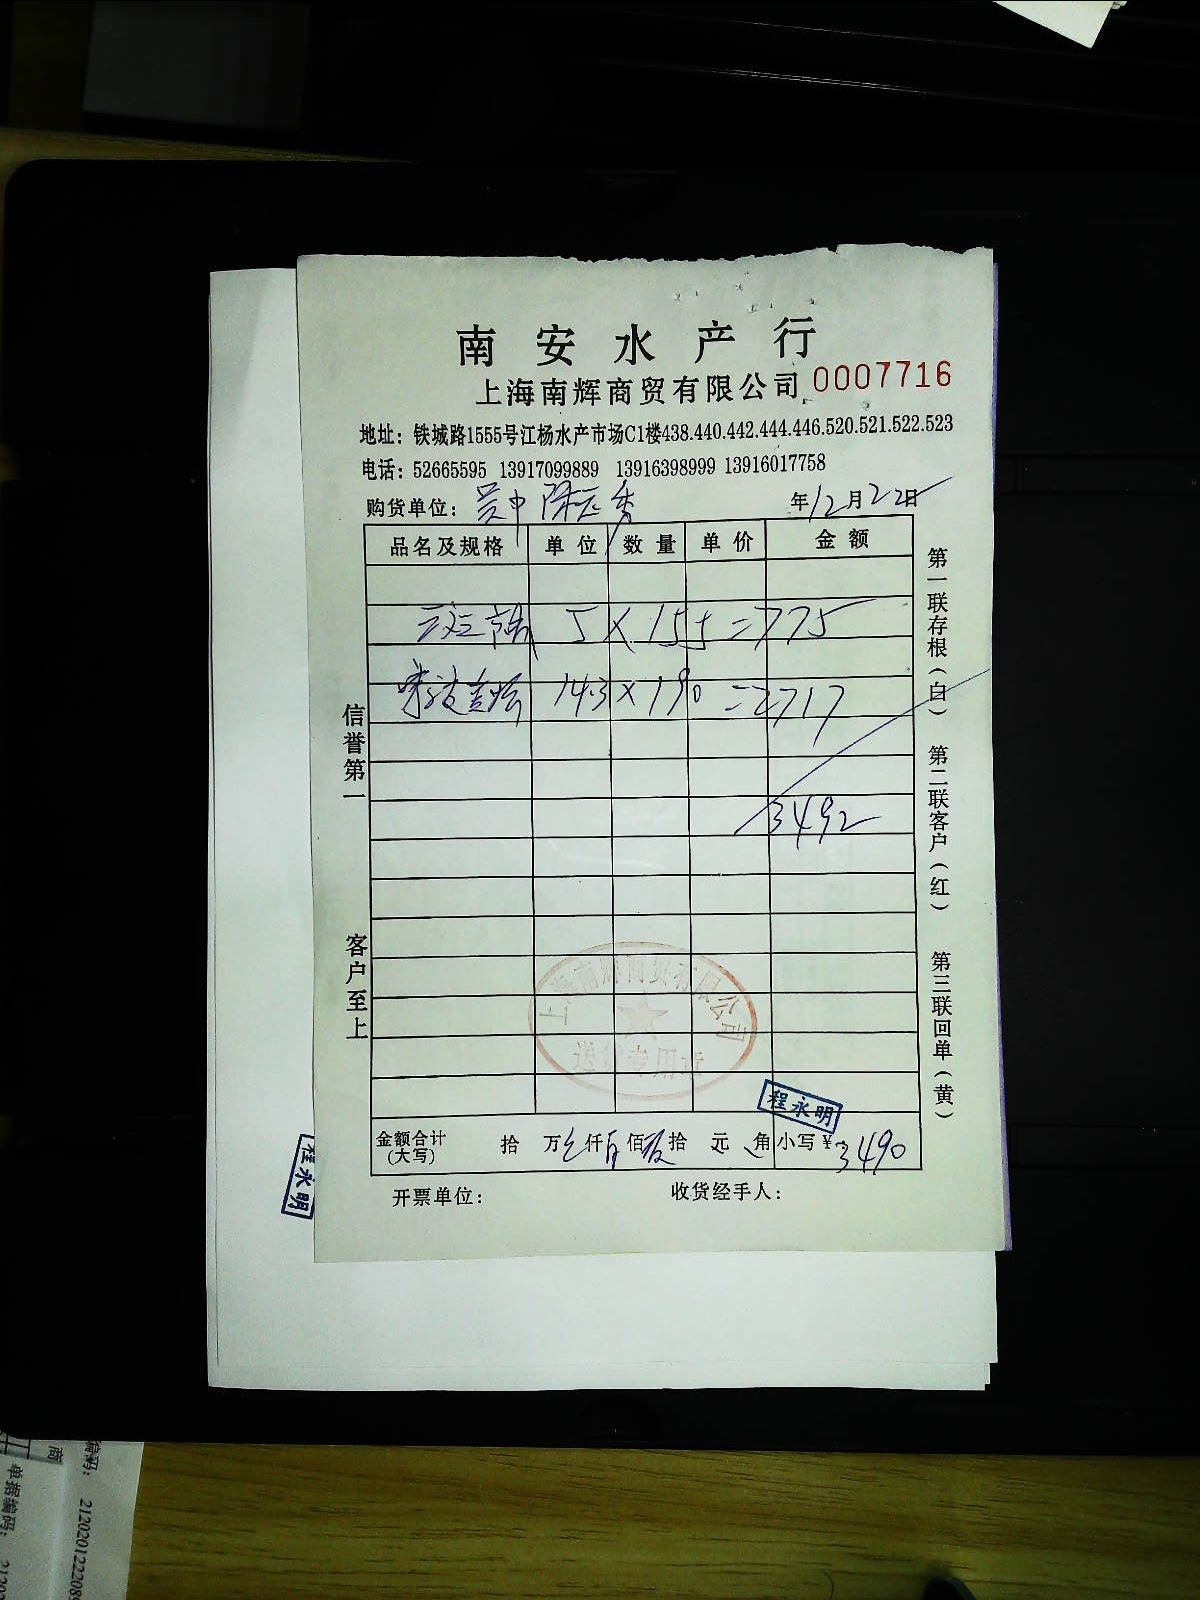 南安水产行
上海南辉商贸有限公司 0007716
地址：铁城路1555号江杨水产市场C1楼438.440.442.444.446.520.521.522.523
电话：52665595 13917099889 13916398999 13916017758
购货单位： 年12月22日
品名及规格 单位 数量 单价 金额
5 × 155 = 775
14.3 × 190 = 2717
3492
金额合计 拾 万 仟 佰 拾 元 角 小写￥3490
(大写)
开票单位： 收货经手人：
信誉第一
客户至上
第一联存根(白) 第二联客户(红) 第三联回单(黄)
上海南辉商贸有限公司
送货专用章
程永明
程永明
商
编码：
单据编码：